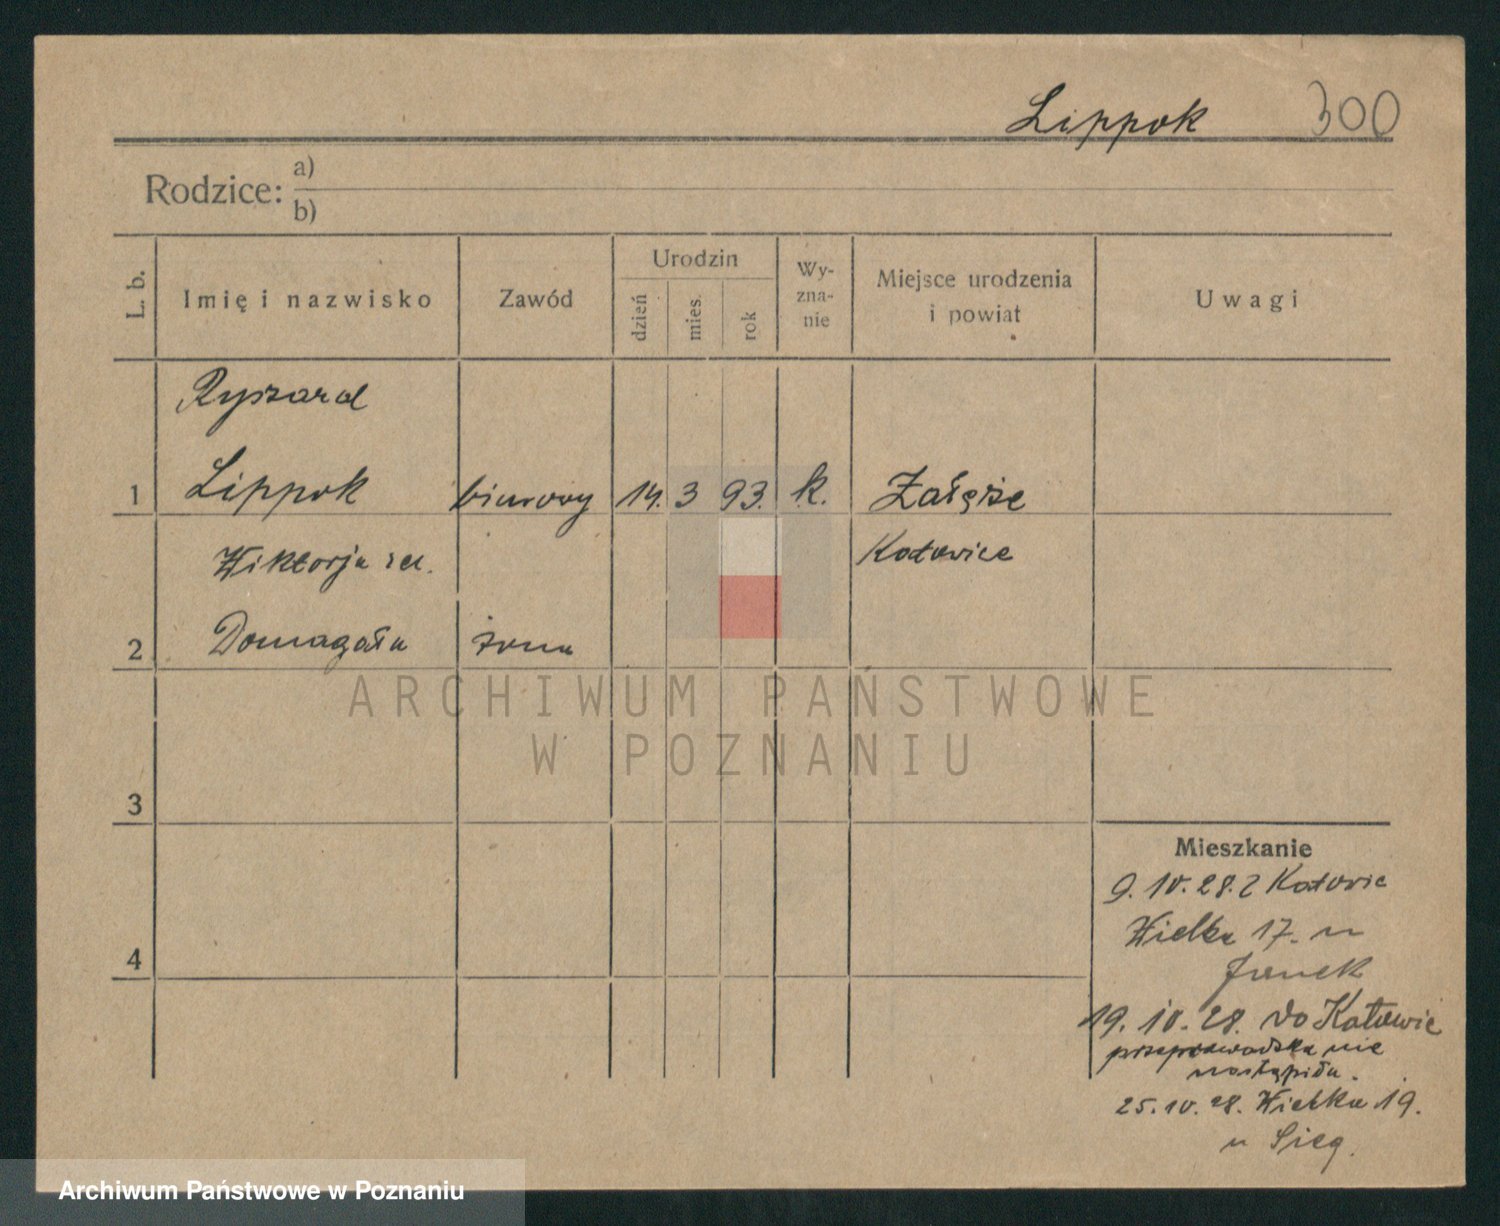 Lippok 300
Rodzice: a)
b)
L. b.
Imię i nazwisko
Zawód
Urodzin
dzień
mies.
rok
Wy-
zna-
nie
Miejsce urodzenia
i powiat
Uwagi
Ryszard
1 Lippok biurowy 14. 3 93. k. Załęże
Wiktorja Katowice
2 Domagała żona
ARCHIWUM PAŃSTWOWE
W POZNANIU
3
Mieszkanie
9. 10. 28. z Katowic
Wielka 17. u
4
19. 10. 28. do Katowic
przeprowadzka nie
nastąpiła.
25. 10. 28. Wielka 19.
u
Archiwum Państwowe w Poznaniu